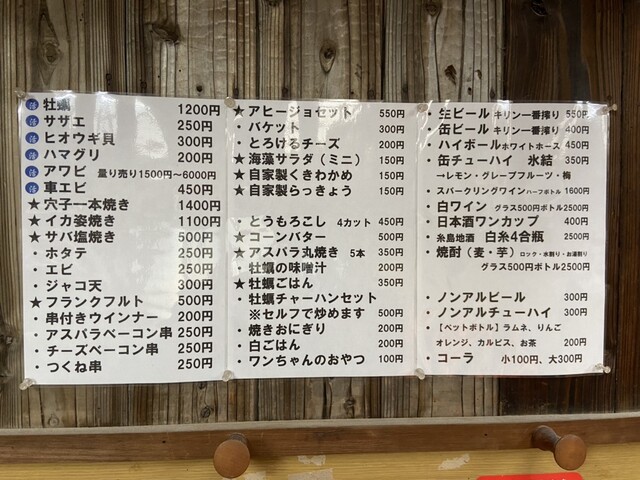 活 牡蠣 1200円
活 サザエ 250円
活 ヒオウギ貝 300円
活 ハマグリ 200円
活 アワビ 量り売り1500円～6000円
活 車エビ 450円
★穴子一本焼き 1400円
★イカ姿焼き 1100円
★サバ塩焼き 500円
・ホタテ 250円
・エビ 250円
・ジャコ天 300円
★フランクフルト 500円
・串付きウインナー 200円
・アスパラベーコン串 250円
・チーズベーコン串 250円
・つくね串 250円
★アヒージョセット 550円
・バケット 300円
・とろけるチーズ 200円
★海藻サラダ（ミニ） 150円
★自家製くきわかめ 150円
★自家製らっきょう 150円
・とうもろこし 4カット 450円
★コーンバター 500円
★アスパラ丸焼き 5本 350円
・牡蠣の味噌汁 200円
★牡蠣ごはん 350円
・牡蠣チャーハンセット
※セルフで炒めます 500円
・焼きおにぎり 200円
・白ごはん 200円
・ワンちゃんのおやつ 100円
・生ビール キリン一番搾り 550円
・缶ビール キリン一番搾り 400円
・ハイボール ホワイトホース 450円
・缶チューハイ 氷結 350円
→レモン・グレープフルーツ・梅
・スパークリングワイン ハーフボトル 1600円
・白ワイン グラス500円ボトル2500円
・日本酒ワンカップ 400円
・糸島地酒 白糸4合瓶 2500円
・焼酎（麦・芋） ロック・水割り・お湯割り
グラス500円ボトル2500円
・ノンアルビール 300円
・ノンアルチューハイ 300円
・【ペットボトル】ラムネ、りんご
オレンジ、カルピス、お茶 200円
・コーラ 小100円、大300円